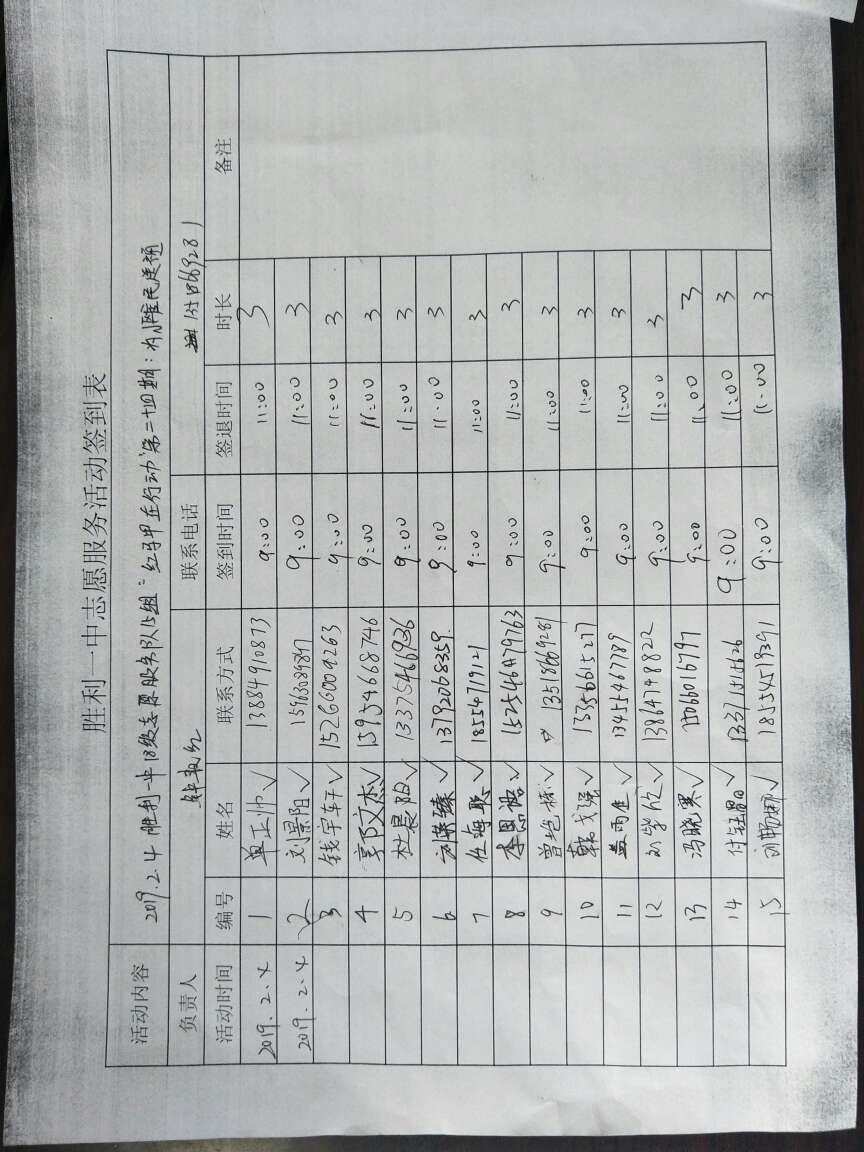 胜利一中志愿服务活动签到表
活动内容 2019.2.4 胜利一中18级志愿服务队15组“红马甲在行动”第二十四期:
负责人 联系电话
活动时间 编号 姓名 联系方式 签到时间 签退时间 时长 备注
2019.2.4 1 单正帅✓ 13884910873 9:00 11:00 3
2019.2.4 2 刘景阳✓ 15963089897 9:00 11:00 3
3 钱宇轩✓ 15266009263 9:00 11:00 3
4 郭文杰✓ 15954668746 9:00 11:00 3
5 杜晨阳✓ 13375466936 9:00 11:00 3
6 ✓ 13792068359 9:00 11:00 3
7 任海聪✓ 18554719121 9:00 11:00 3
8 李恩浩✓ 9:00 11:00 3
9 ✓ 13518669281 9:00 11:00 3
10 ✓ 13356615277 9:00 11:00 3
11 盖雨佳✓ 13455467789 9:00 11:00 3
12 ✓ 13864748822 9:00 11:00 3
13 冯晓寒✓ 15066016797 9:00 11:00 3
14 ✓ 13371515626 9:00 11:00 3
15 刘畅娜✓ 18554519391 9:00 11:00 3